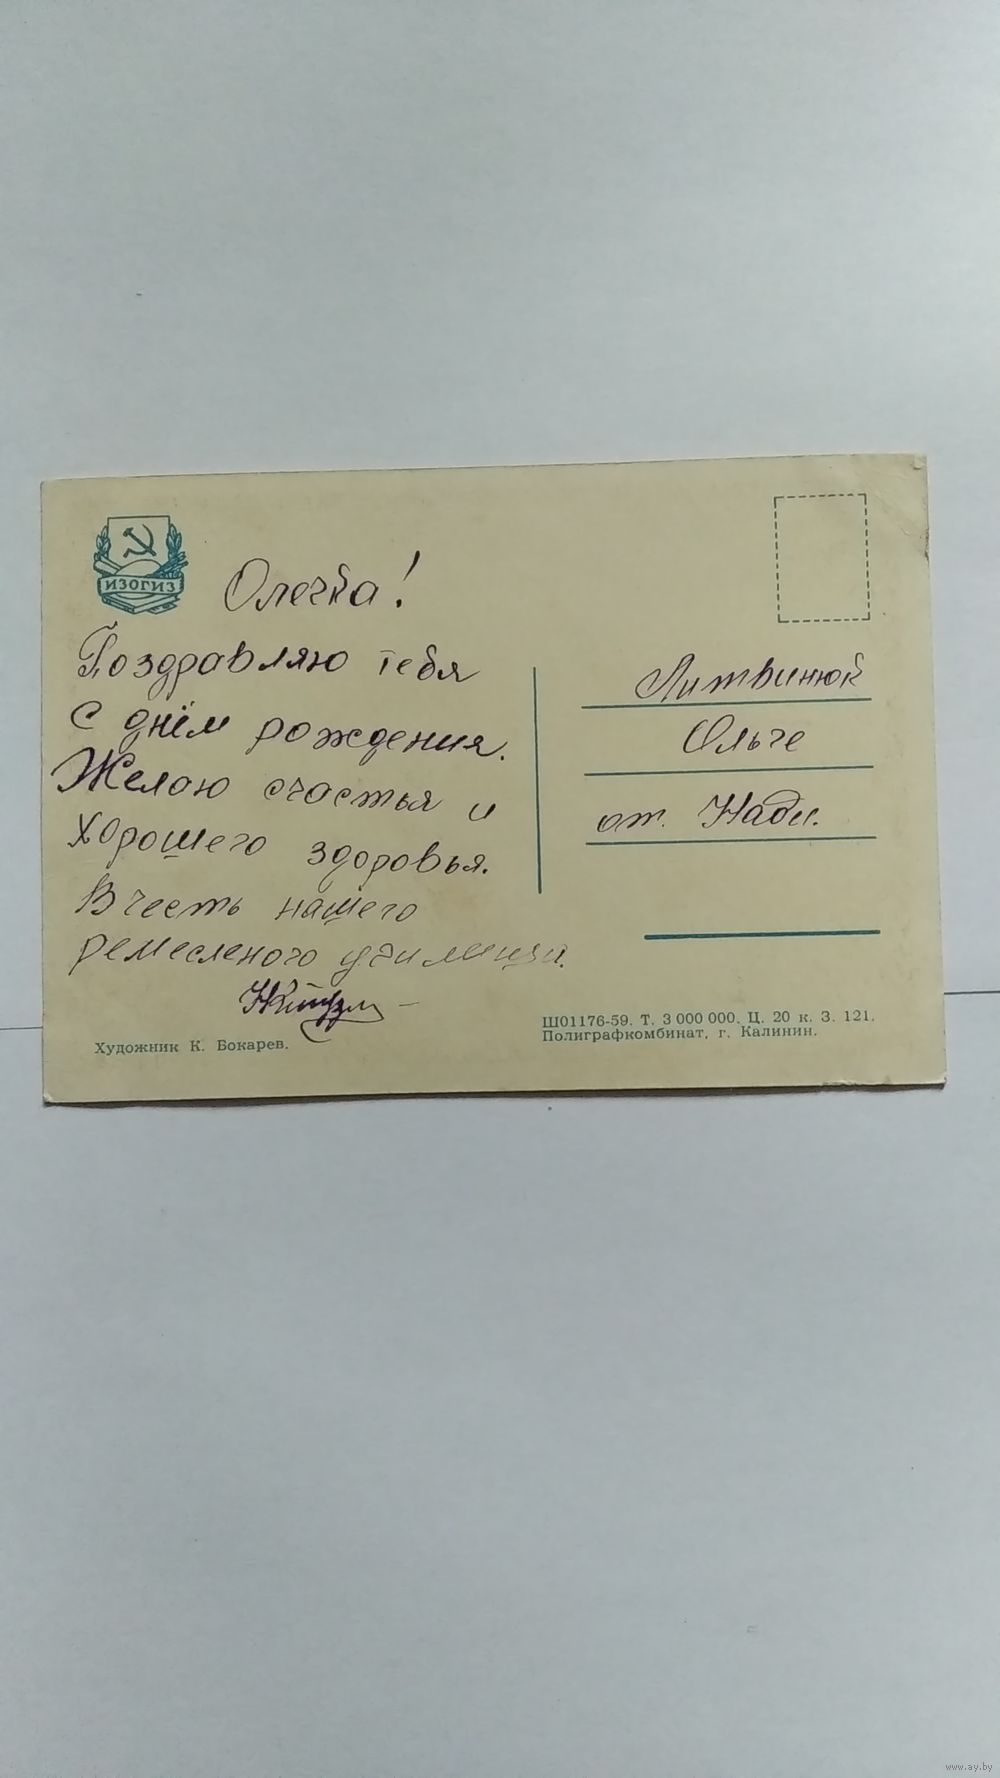 ИЗОГИЗ
Олечка!
Поздравляю тебя
с днём рождения.
Желаю счастья и
хорошего здоровья.
В честь нашего
ремесленого училища.
Художник К. Бокарев.
Литвинюк
Ольге
от Нади.
Ш01176-59. Т. 3 000 000. Ц. 20 к. З. 121.
Полиграфкомбинат, г. Калинин.
www.ay.by